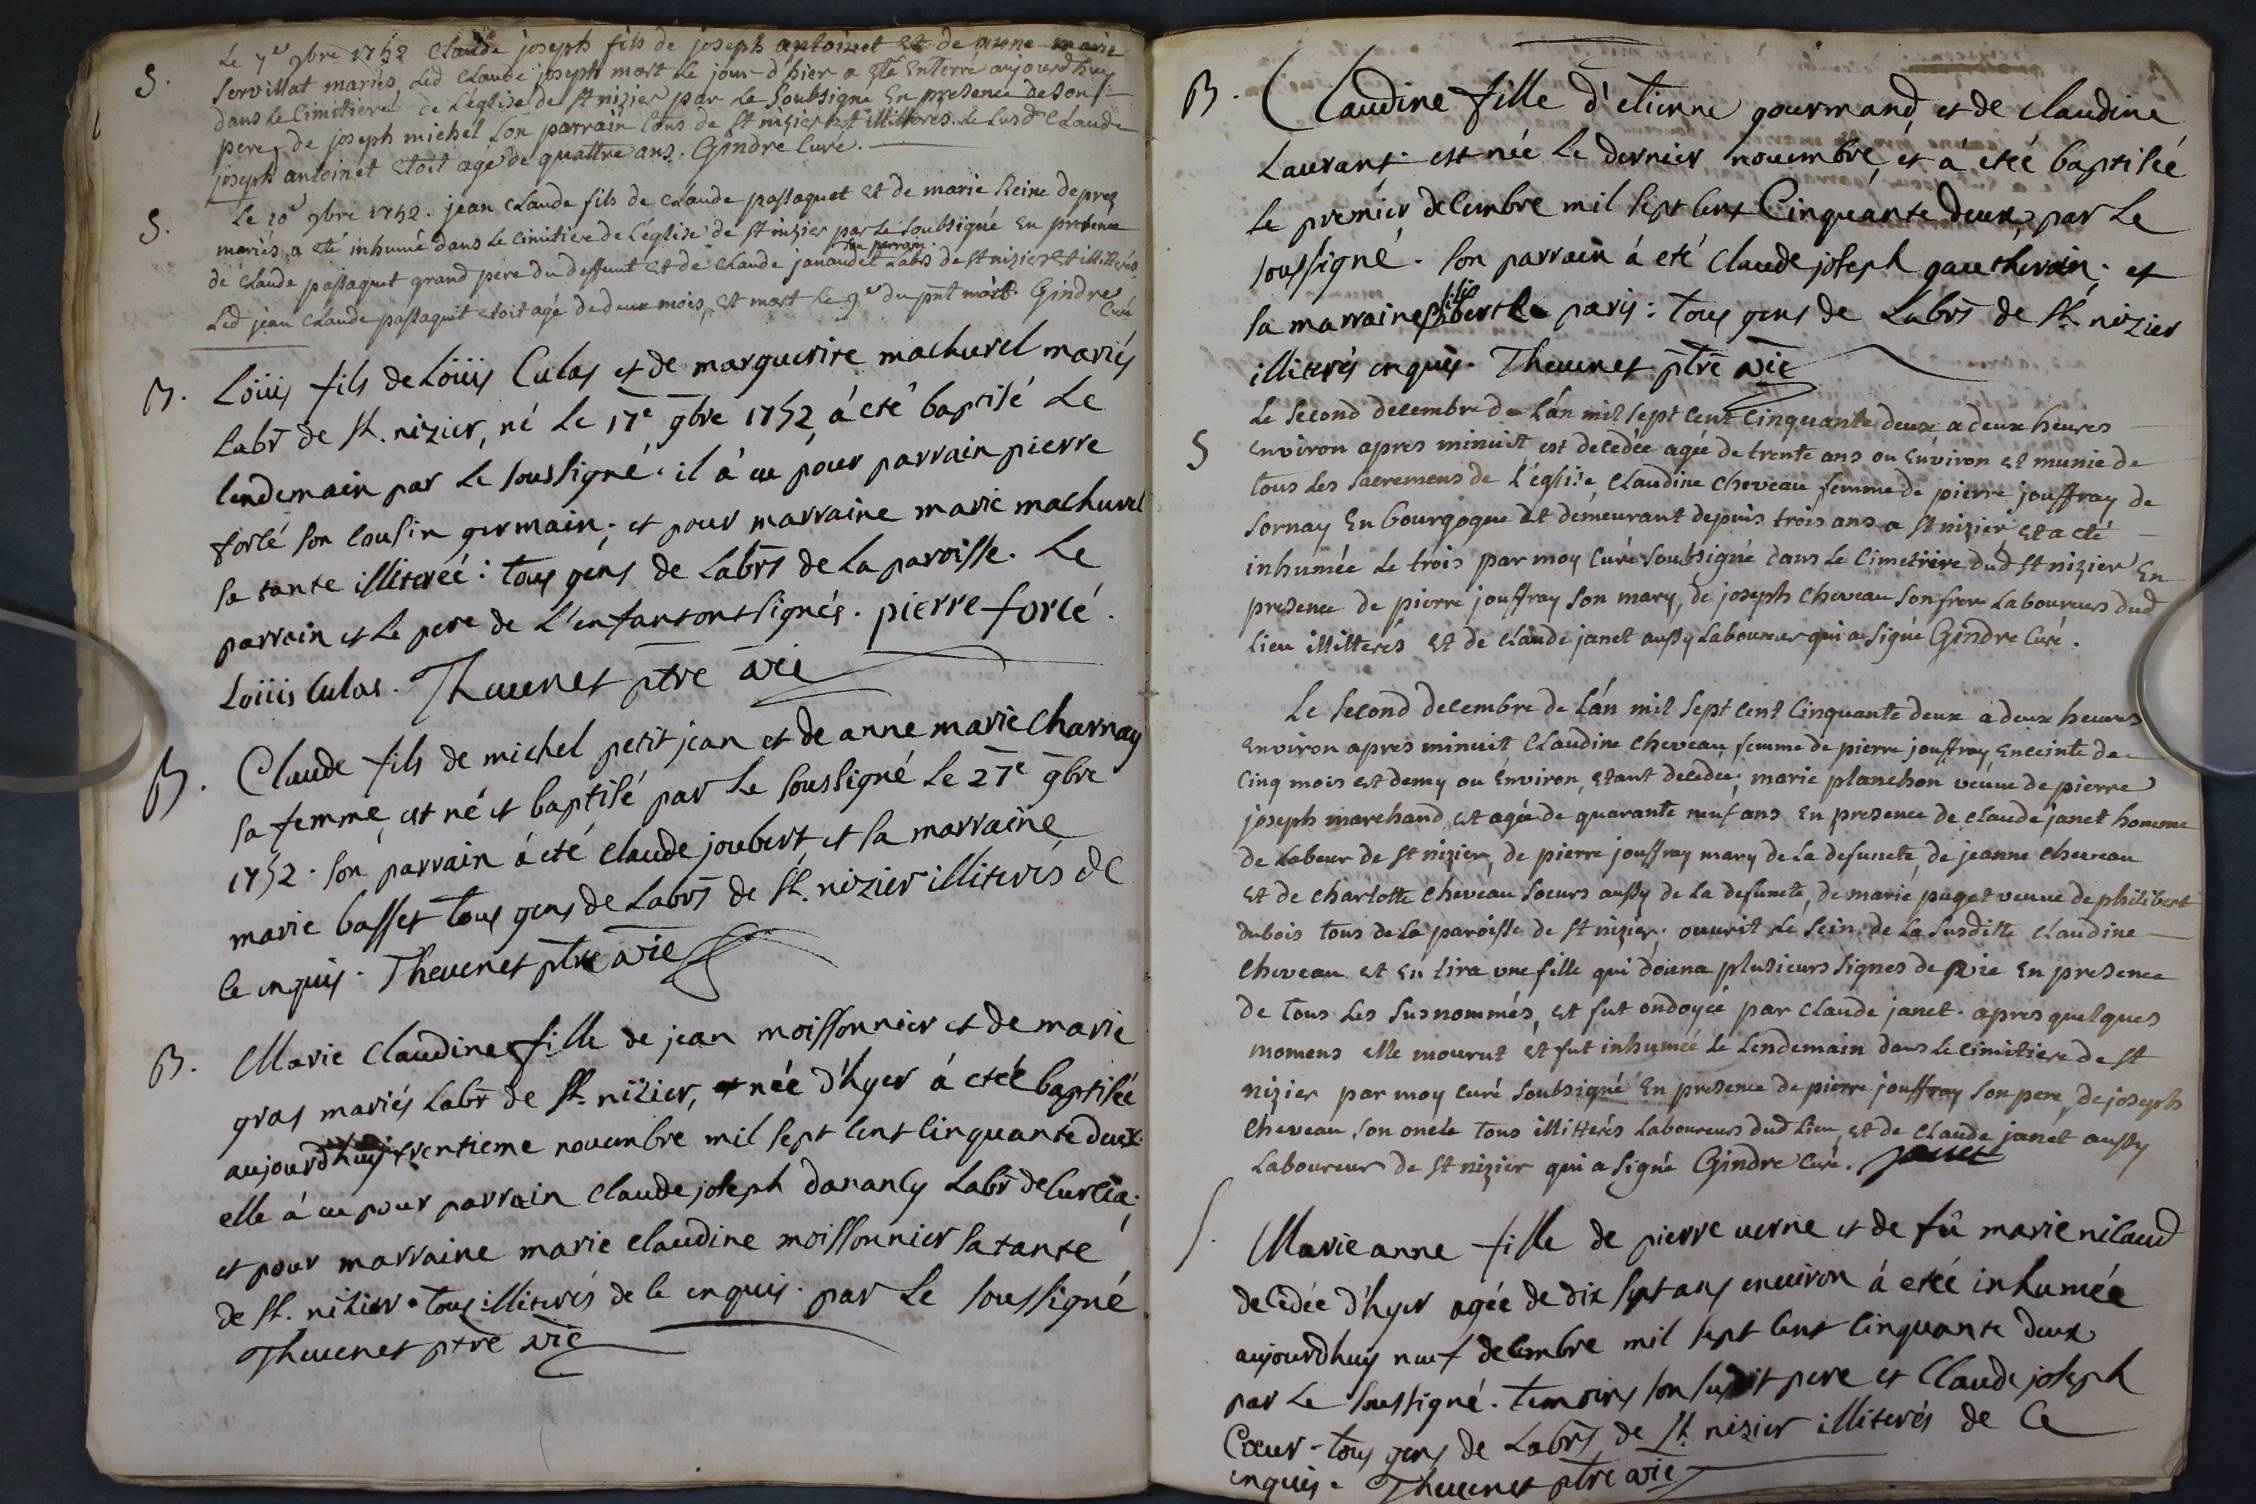 S. Le 7e 9bre 1752 Claude joseph fils de joseph antoinet et de anne marie
Servillat mariés, Led Claude joseph mort le jour d'hier a eté enterré aujourdhuy
dans le Cimitiere de L'église de St nizier par le Soubsigné En presence de son
pere, de joseph michel son parrain tous de St nizier et illitterés. Le Susd Claude
joseph antoinet etoit agé de quattre ans. Gindre Curé.
S. Le 10e 9bre 1752. jean claude fils de Claude passaquet et de marie Reine deprez
mariés, a eté inhumé dans le cimitiere de L'église de St nizier par le Soubsigné en presence
de Claude passaquet grand pere du deffunt et de claude janaudet son parrain Labrs de St nizier et illitterés.
Led jean claude passaquet etoit agé de deux mois, et mort le 9e du pnt mois. Gindre
Curé
B. Loüis fils de Loüis Culas et de marguerite machurel mariés
Labr de St. nizier, né le 17e 9bre 1752, á eté baptisé le
lendemain par le soussigné. il á eu pour parrain pierre
forcé son cousin germain; et pour marraine marie machurel
sa tante illiterée: tous géns de Labrs de la paroisse. Le
parrain et le pere de l'enfant ont signés. pierre forcé.
Loüis Culas. Thevenet ptre vic
B. Claude fils de michel petit jean et de anne marie Charnay
sa femme, est né et baptisé par le soussigné le 27e 9bre
1752. son parrain á eté claude joubert et sa marraine
marie basset tous gens de Labrs de St. nizier illiterés de
ce enquis. Thevenet ptre vic
B. Marie Claudine fille de jean moissonnier et de marie
gras mariés Labr de St. nizier, née d'hyer á eteé baptisée
aujourdhuy trentieme novembre mil sept cent cinquante deux.
elle á eu pour parrain claude joseph dananly Labr de Curcia;
et pour marraine marie claudine moissonnier sa tante
de St. nizier. tous illiterés de ce enquis. par le soussigné
Thevenet ptre vic
B. Claudine fille d'etienne gourmand, et de claudine
Laurant est née le dernier novembre, et á eteé baptisée
le premier decembre mil sept cent Cinquante deux, par le
soussigné. son parrain á eté claude joseph gautheron; et
sa marraine philiberte paris: tous gens de Labrs de St. nizier
illiterés enquis. Thevenet ptre vic
S Le Second decembre de L'án mil sept cent cinquante deux a deux heures
environ apres minuit est decedée agée de trente ans ou environ et munie de
tous les sacremens de l'église Claudine cheveau femme de pierre jouffray de
Sornay en bourgogne et demeurant depuis trois ans a St nizier, et a eté
inhumée le trois par moy curé soubsigné dans le Cimetiere dud St nizier en
presence de pierre jouffray son mary, de joseph cheveau son frere Laboureurs dud
lieu illitterés et de claude janet aussy Laboureur qui a signé Gindre Curé.
Le Second decembre de L'án mil sept cent cinquante deux a deux heures
environ apres minuit Claudine cheveau femme de pierre jouffray, enceinte de
cinq mois et demy ou environ, etant decedée; marie planchon veuve de pierre
joseph marchand, et agée de quarante neuf ans en presence de claude janet homme
de Labeur de St nizier, de pierre jouffray mary de la defuncte, de jeanne cheveau
et de charlotte cheveau soeurs aussy de la defuncte, de marie paget veuve de philibert
dubois tous de la paroisse de St nizier; ouvrit le sein de la susditte claudine
cheveau et en tira une fille qui donna plusieurs signes de vie en presence
de tous les susnommés, et fut ondoyée par claude janet. apres quelques
momens elle mourut et fut inhumée le lendemain dans le cimitiere de St
nizier par moy curé soubsigné en presence de pierre jouffray son pere, de joseph
cheveau son oncle tous illitterés Laboureurs dud lieu, et de claude janet aussy
Laboureur de St nizier qui a signé Gindre Curé. janet
S. Marie anne fille de pierre verne et de fû marie nilaud
decedée d'hyer agée de dix sept ans environ á eteé inhumée
aujourdhuy neuf decembre mil sept cent cinquante deux
par le soussigné. temoins son susdit pere et Claude joseph
Cœur. tous gens de Labrs de St. nizier illiterés de ce
enquis. Thevenet ptre vic